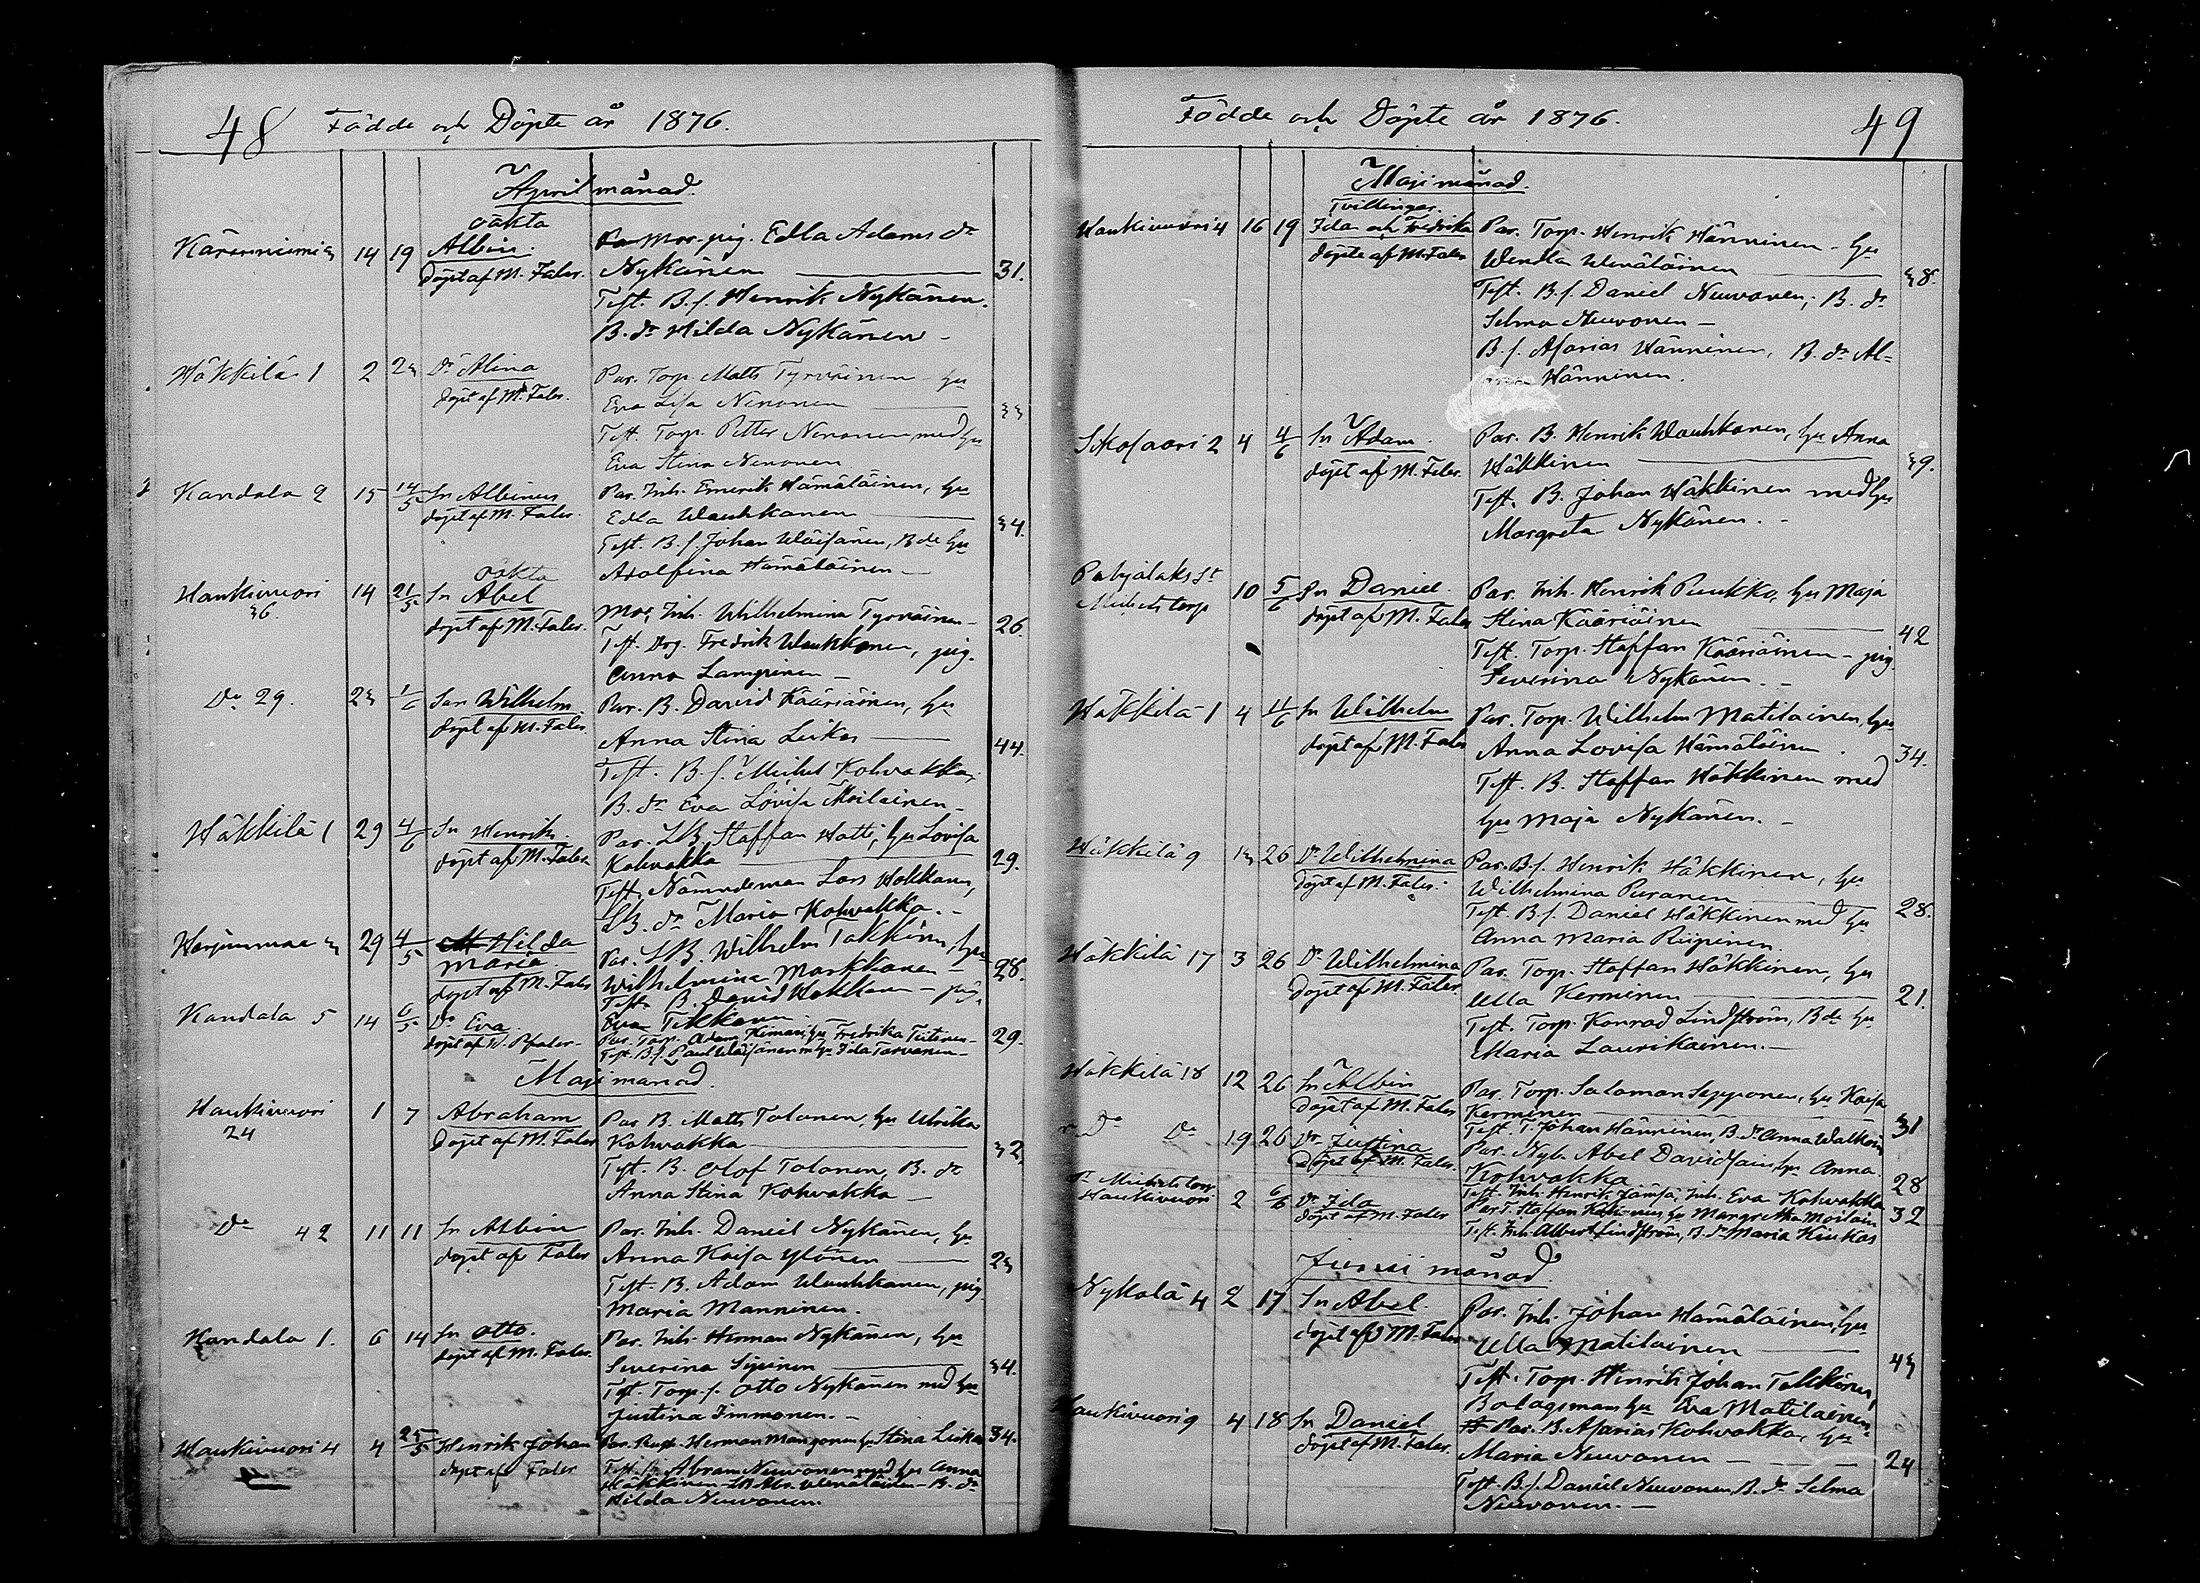 48 Födde och Döpte år 1876.
April månad.
oäkta
Kärenniemi 3 14 19 Albin. Mor. pig. Edla Adams dr
döpt af M. Faler. Nykänen 31.
Test. B.s. Henrik Nykänen.
B. dr Hilda Nykänen
Häkkilä 1 2 23 Dr Alina Par. Torp. Matts Tyrväinen hu
döpt af M. Faler. Eva Lisa Nenonen 33
Test. Torp. Petter Nenonen med hu
Eva Stina Nenonen
Kandala 2 15 14/5 Sn Albinus Par. Inh. Emerik Hämäläinen, hu
döpt af M. Faler. Edla Wauhkonen 34.
Test. B.s. Johan Wäisänen, B de hu
Adolfina Hämäläinen
oäkta
Haukivuori 14 21/5 Sn Abel Mor, Inh. Wilhelmina Tyrväinen
36. döpt af M. Faler. 26.
Test. Drg. Fredrik Wauhkonen, pig.
Anna Lampinen
Do 29. 23 1/6 Son Wilhelm Par. B. David Kääriäinen, hu
döpt af M. Faler Anna Stina Liikas 44.
Test. B.s. Mickel Kohvakka,
B. dr Eva Lovisa Moilainen
Häkkilä 1 29 4/6 Sn Henrik. Par. LB. Staffan Hatti, hu Lovisa
döpt af M. Faler Kohvakka 29.
Test. Nämndeman Lars Hokkanen,
LB. dr Maria Kohvakka.
Harjunmaa 3 29 4/5 Hilda Par. LB. Wilhelm Takkinen, hu
Maria. Wilhelmina Markkanen 28.
döpt af M. Faler Test. B. David Hokkanen - pig.
Eva Tikkanen
Kandala 5 14 6/5 Dr Eva Par. Torp. Adam Kimari, hu Fredrika Tiitinen 29.
Test. B.s. Paul Wäisänen m. hu Ida Tarvonen
Maji månad.
Haukivuori 1 7 Abraham Par B. Matts Tolonen, hu Ulrika
24 döpt af M. Faler Kohvakka 32.
Test. B. Olof Tolonen, B. dr
Anna Stina Kohvakka
Do 42 11 11 Sn Albin Par. Inh. Daniel Nykänen, hu
döpt af Faler Anna Kaisa Ylönen 23
Test. B. Adam Wauhkonen, pig
Maria Manninen.
Kandala 1. 6 14 Sn Otto. Par. Inh. Herman Nykänen, hu
döpt af M. Faler. Severina Sipinen 34.
Test. Torp.s. Otto Nykänen med hu
Justina Immonen.
Haukivuori 4 4 25/5 Henrik Johan Par. Herman Manninen hu Stina Liikas 34.
döpt af Faler Test. Abram Neuvonen med hu Anna
Häkkinen - Wenäläinen - B. dr
Hilda Neuvonen.
Födde och Döpte år 1876. 49
Maji månad.
Tvillingar.
Haukivuori 4 16 19 Ida och Fredrika Par. Torp. Henrik Hänninen - hu
döpte af M. Faler Wendla Wenäläinen 38.
Test. B.s. Daniel Neuvonen, B. dr
Selma Neuvonen
B.s. Asarias Hänninen, B. dr Al-
Hänninen.
Sikosaari 2 4 4/6 Sn Adam. Par. B. Henrik Wauhkonen, hu Anna
döpt af M. Faler. Häkkinen 39.
Test. B. Johan Häkkinen med hu
Margreta Nykänen.
Pohjalaks St
Michels torp 10 5/6 Sn Daniel. Par. Inh. Henrik Puukko, hu Maja
döpt af M. Faler Stina Kääriäinen 42
Test. Torp. Staffan Kääriäinen - pig
Severina Nykänen.
Häkkilä 1 4 11/6 Sn Wilhelm Par. Torp. Wilhelm Matilainen, hu
döpt af M. Faler Anna Lovisa Hämäläinen. 34.
Test. B. Staffan Häkkinen med
hu Maja Nykänen.
Häkkilä 9 13 26 Dr Wilhelmina Par. B.s. Henrik Häkkinen, hu
döpt af M. Faler. Wilhelmina Puranen 28.
Test. B.s. Daniel Häkkinen med hu
Anna Maria Riipinen.
Häkkilä 17 3 26 Dr Wilhelmina Par. Torp. Staffan Häkkinen, hu
döpt af M. Faler. Ulla Kerminen 21.
Test. Torp. Konrad Lindström, B de hu
Maria Laurikainen.
Häkkilä 18 12 26 Sn Albin Par. Torp. Salomon Sepponen, hu Kaisa
döpt af M. Faler Kerminen 31
Test. T. Johan Hänninen, B. dr Anna Walkoin
Do Do 19 26 Dr Justina Par. Nyb. Abel Davidsain, hu Anna
döpt af M. Faler. Kohvakka 28
Test. Inh. Henrik Jämsä, Inh. Eva Kohvakka
St Michels torp
Haukivuori 2 6/6 Dr Ida Par T. Staffan hu Margretha Moilain 32
döpt af M. Faler Test. Inh. Albert Lindström, B. dr Maria Kiukas
Junii månad.
Nykälä 4 2 17 Sn Abel. Par. Inh. Johan Hämäläinen, hu
döpt af M. Faler Ulla Matilainen 43
Test. Torp. Henrik Johan Takkinen,
Bolagsmans hu Eva Matilainen
Haukivuori 9 4 18 Sn Daniel Par. B. Asarias Kohvakka, hu
döpt af M. Faler. Maria Neuvonen 24
Test. B.s. Daniel Neuvonen, B. dr Selma
Neuvonen.